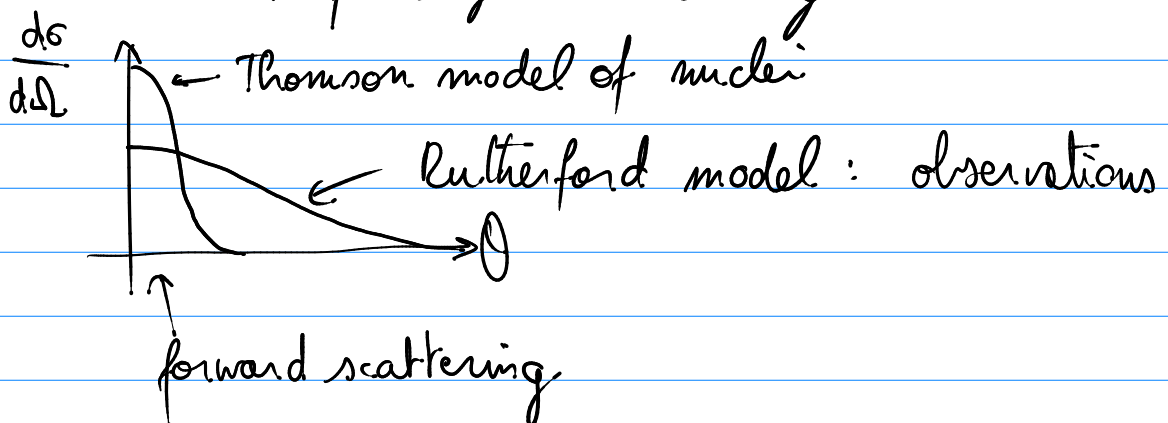 dσ
dΩ
Thomson model of nuclei
Rutherford model : observations
θ
forward scattering